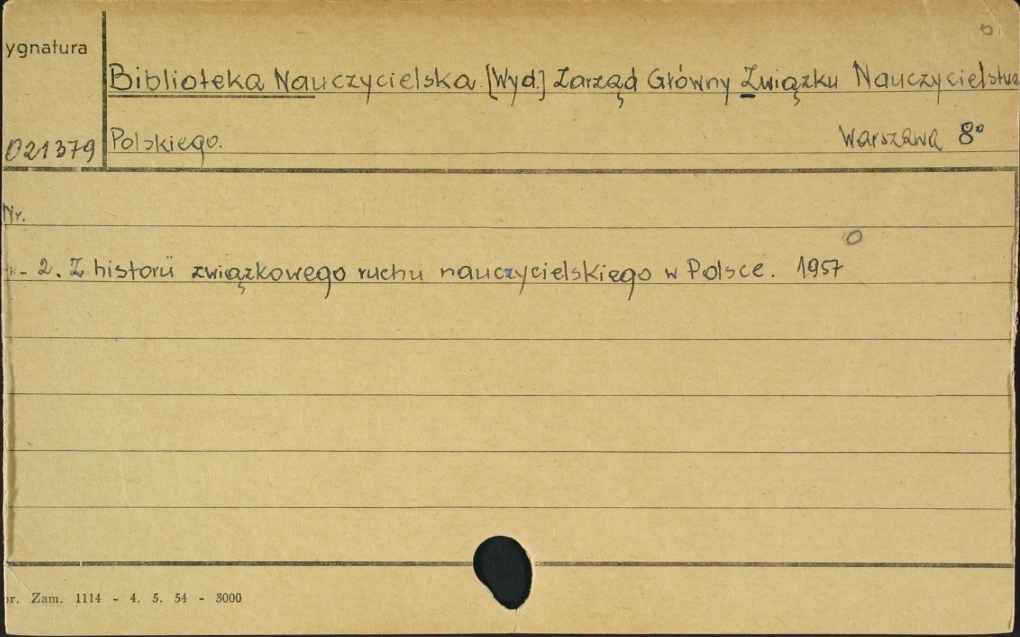 ygnatura
Biblioteka Nauczycielska. [Wyd.] Zarząd Główny Związku Nauczycielstwa
021379 Polskiego. Warszawa 8°
Nr.
- 2. Z historii związkowego ruchu nauczycielskiego w Polsce. 1957
or. Zam. 1114 - 4. 5. 54 - 3000